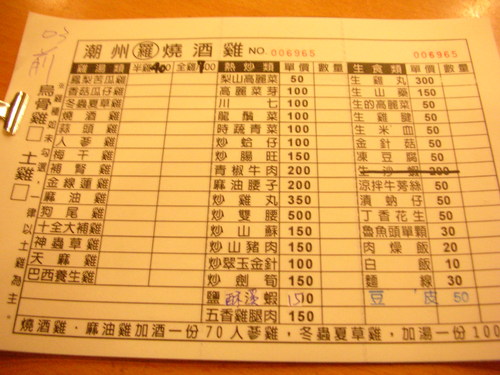 潮州 雞 燒酒雞 NO. 006965
006965
烏骨雞□ 土雞□
雞湯類 半雞400 全雞 熱炒類 單價 數量 生食類 單價 數量
鳳梨苦瓜雞 梨山高麗菜 50 生雞丸 300
香菇瓜仔雞 高麗菜芽 100 生山藥 150
冬蟲夏草雞 川七 100 生的高麗菜 50
燒酒雞 龍鬚菜 100 生雞腱 50
蒜頭雞 時蔬青菜 100 生米血 50
人蔘雞 炒蛤仔 100 金針菇 50
梅干雞 炒腸旺 150 凍豆腐 50
補腎雞 青椒牛肉 200 生沙蝦 200
金線蓮雞 麻油腰子 200 涼拌牛蒡絲 50
麻油雞 炒雞丸 350 漬蚋仔 50
狗尾雞 炒雙腰 500 丁香花生 50
十全大補雞 炒山蘇 150 魯魚頭單顆 30
神蟲草雞 炒山豬肉 150 肉燥飯 20
天麻雞 炒翠玉金針 100 白飯 10
巴西養生雞 炒劍筍 150 麵線 30
鹽酥溪蝦 150 豆皮 50
五香雞腿肉 150
燒酒雞．麻油雞加酒一份70人蔘雞，冬蟲夏草雞，加湯一份100